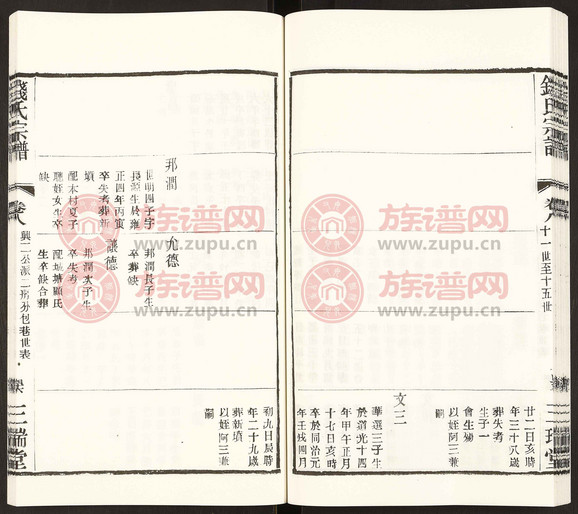 錢氏宗譜
卷八
十一世至十五世
三瑞堂
廿二日亥時
年三十八歲
葬失考
生子一
會生殤
以姪阿三兼
嗣
文二
華選三子生
於道光十四
年甲午正月
十七日亥時
卒於同治元
年壬戌四月
初九日辰時
年二十九歲
葬新墳
以姪阿三兼
嗣
邦潤
世明四子字
長源生於雍
正四年丙寅
卒失考葬新
墳
配本村夏子
聰姪女生卒
缺
允德
邦潤長子生
卒葬缺
讓德
邦潤次子生
卒失考
配城塘顧氏
生卒缺合葬
錢氏宗譜
卷八
興二公派二房分包巷世表
三瑞堂
族谱网
www.zupu.cn
族谱网
www.zupu.cn
族谱网
www.zupu.cn
族谱网
www.zupu.cn